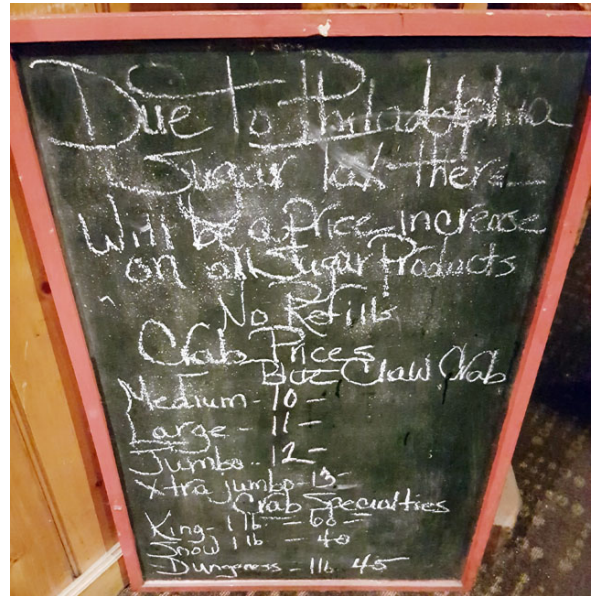 Due To Philadelphia
Sugar Tax there
Will be a Price increase
on all Sugar Products
No Refills
Crab Prices
Blue Claw Crab
Medium - 10 -
Large - 11 -
Jumbo - 12 -
Xtra jumbo - 13 -
Crab Specialties
King - 1 lb - 60 -
Snow 1 lb - 40
Dungeness - 1lb 45